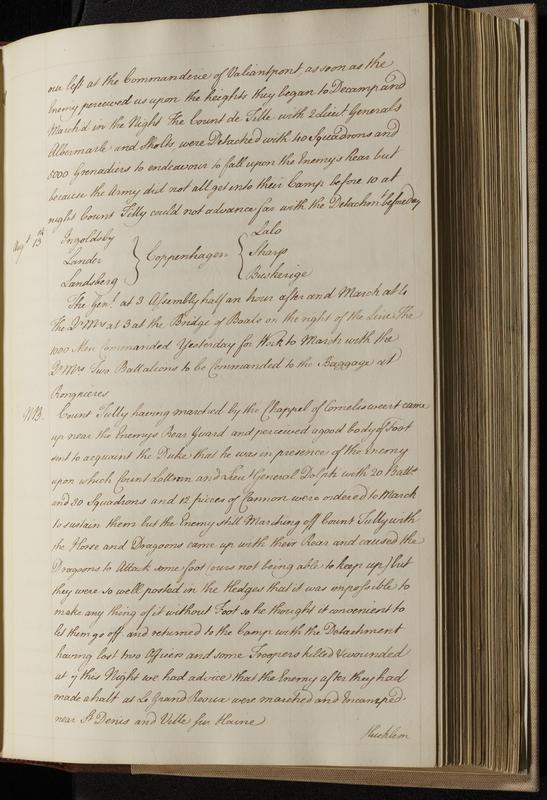 our left at the Commanderie of Valiantpont, as soon as the
Enemy perceived us upon the heights they began to Decamp and
March'd in the Night the Count de Tille with 2 Lieut Generals
Albermarle and Sholts, were Detached with 40 Squadrons and
5000 Grenadiers to endeavour to fall upon the Enemy's Rear but
because the Army did not all get into their Camp before 10 at
night Count Tilly could not advance far with the Detachmt before day
Augt 13th Ingoldsby Lalo
Lander } Coppenhagen { Sharp
Landsberg Buskerige
The Genl at 3 Assembly half an hour after and March at 4
The Qr Mrs at 3 at the Bridge of Boats on the right of the Line, The
1000 Men Commanded Yesterday for Work to March with the
Qr Mrs Two Battalions to be Commanded to the Baggage at
Rongnieres
NB. Count Tilly having marched by the Chappel of Cornelisweert came
up near the Enemys Rear Guard and perceived a good body of Foot
sent to acquaint the Duke that he was in presence of the Enemy
upon which Count Lottum and Lieut General Dolph with 20 Battns
and 30 Squadrons and 12 pieces of Cannon were ordered to March
to sustain them but the Enemy still Marching off Count Tully with
the Horse and Dragoons came up with their Rear and caused the
Dragoons to Attack some foot (ours not being able to keep up) but
they were so well posted in the Hedges that it was impossible to
make any thing of it without Foot so he thought it convenient to
let them go off and returned to the Camp with the Detachment
having lost two Officers and some Troopers killed & wounded
at this Night we had advice that the Enemy after they had
made a halt at Le Grand Reoux were marched and Encamped
near St Denis and Ville sur Haine